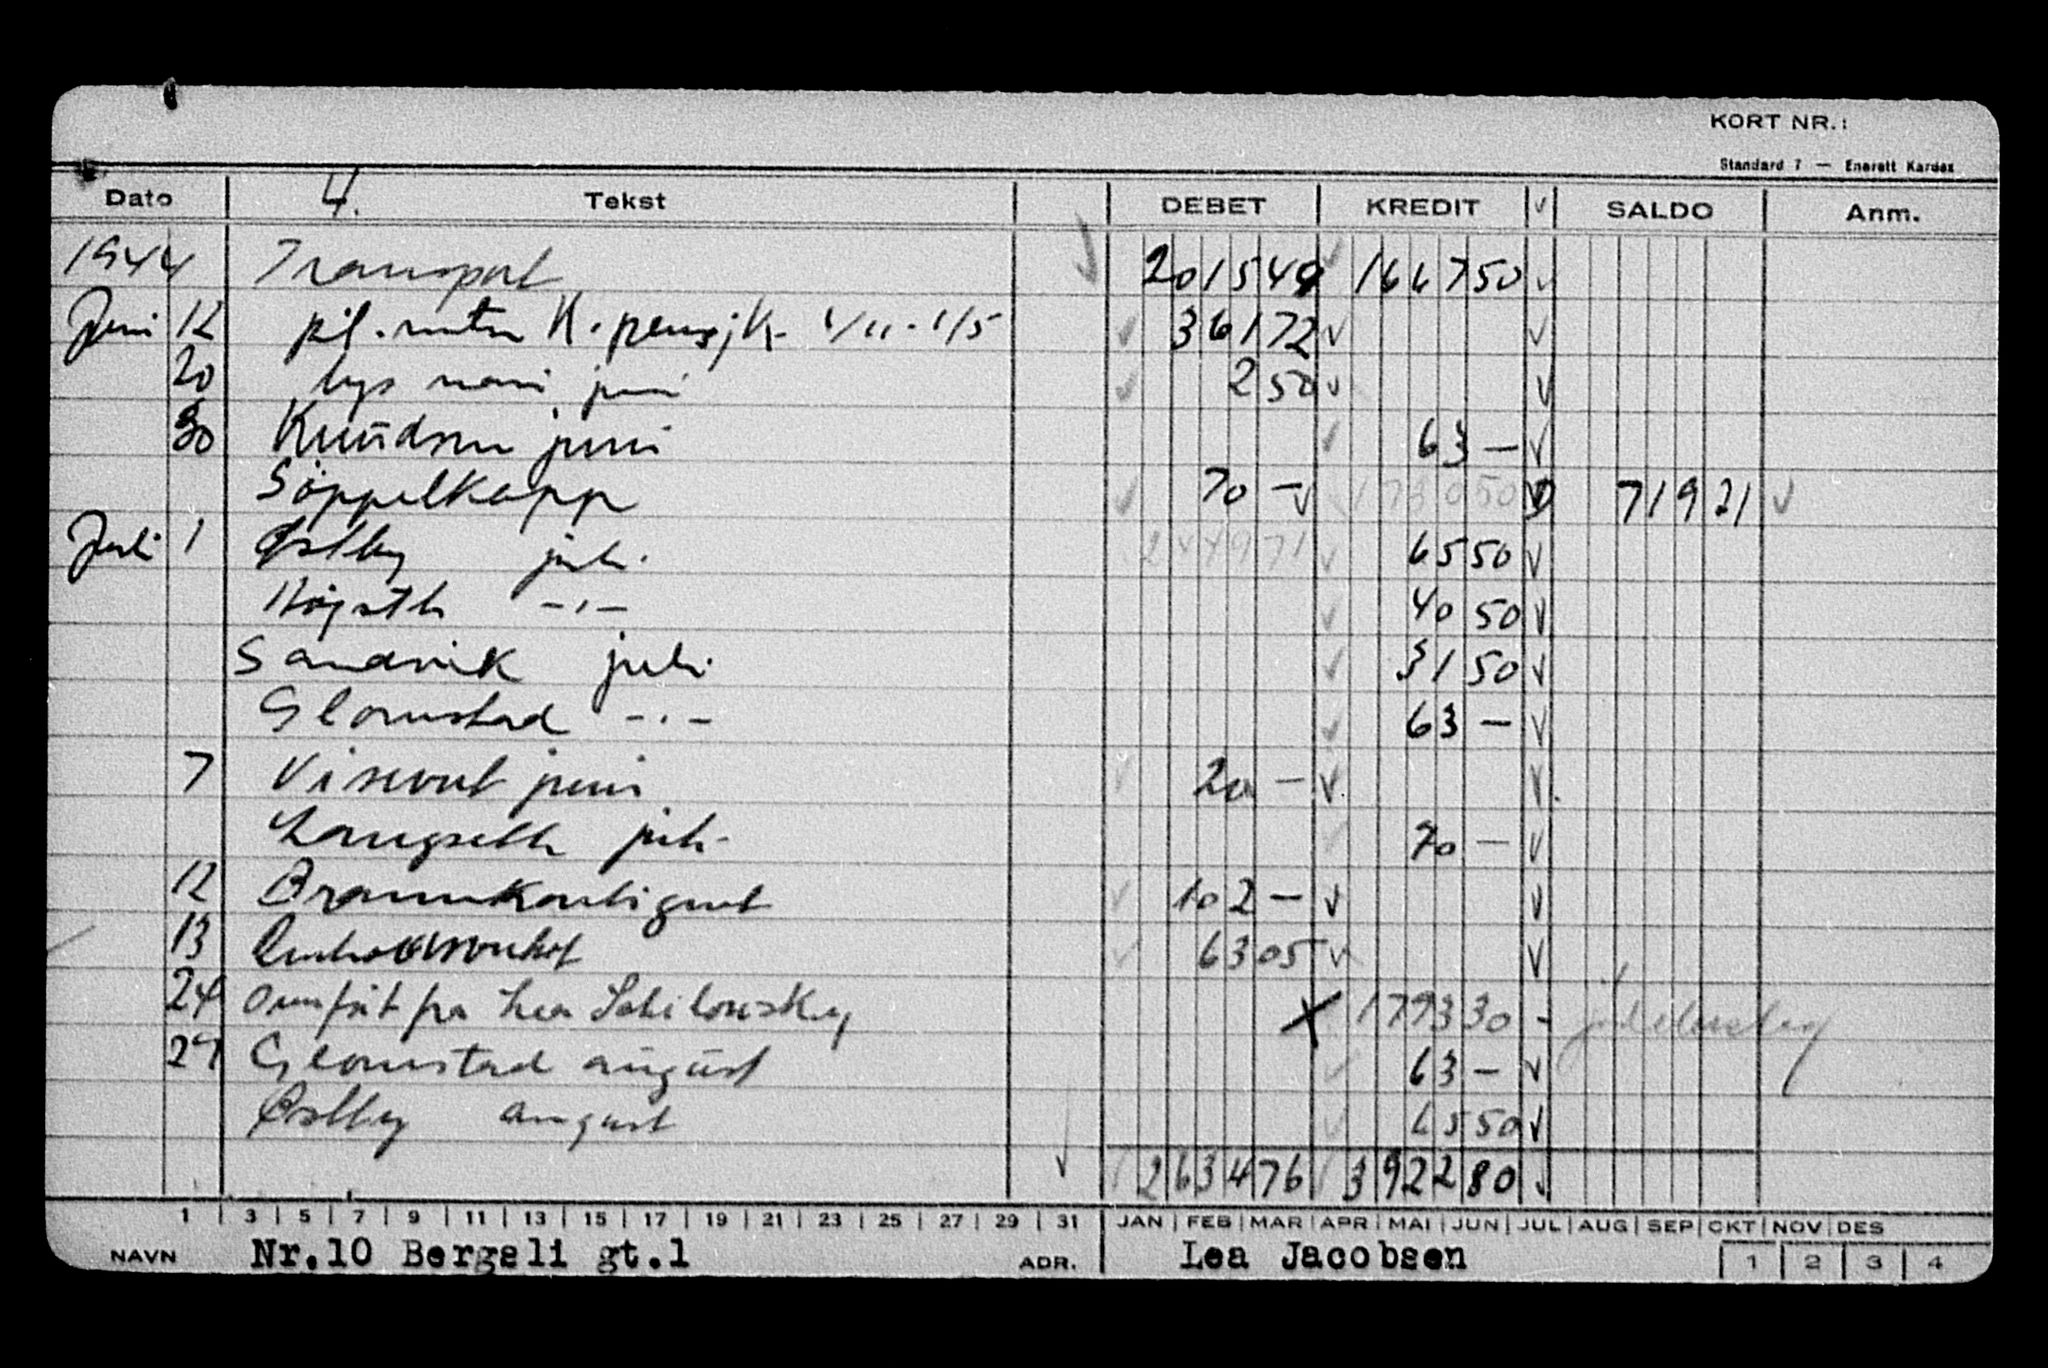 KORT NR.:
Standard 7 — Enerett Kardex
Dato 4. Tekst DEBET KREDIT √ SALDO Anm.
1944 Transport 201549 166750
Juni 12 K. pensjk. 1/11-1/5 36172
20 lys juni 250
30 Knudsen juni 63 —
Søppelkasse 70 — 173050 71921
Juli 1 Østby juli 244971 6550
-"- 4050
Sandvik juli 3150
Glomstad -"- 63 —
7 juni 20 —
Langseth juli 70 —
12 Brannkontigent 102 —
13 6305
24 Overført fra Lea Schilowsky 179330 —
29 Glomstad august 63 —
Østby august 6550
263476 392280
1 3 5 7 9 11 13 15 17 19 21 23 25 27 29 31 JAN FEB MAR APR MAI JUN JUL AUG SEP OKT NOV DES
NAVN Nr.10 Bergsli gt.1 ADR. Lea Jacobsen 1 2 3 4